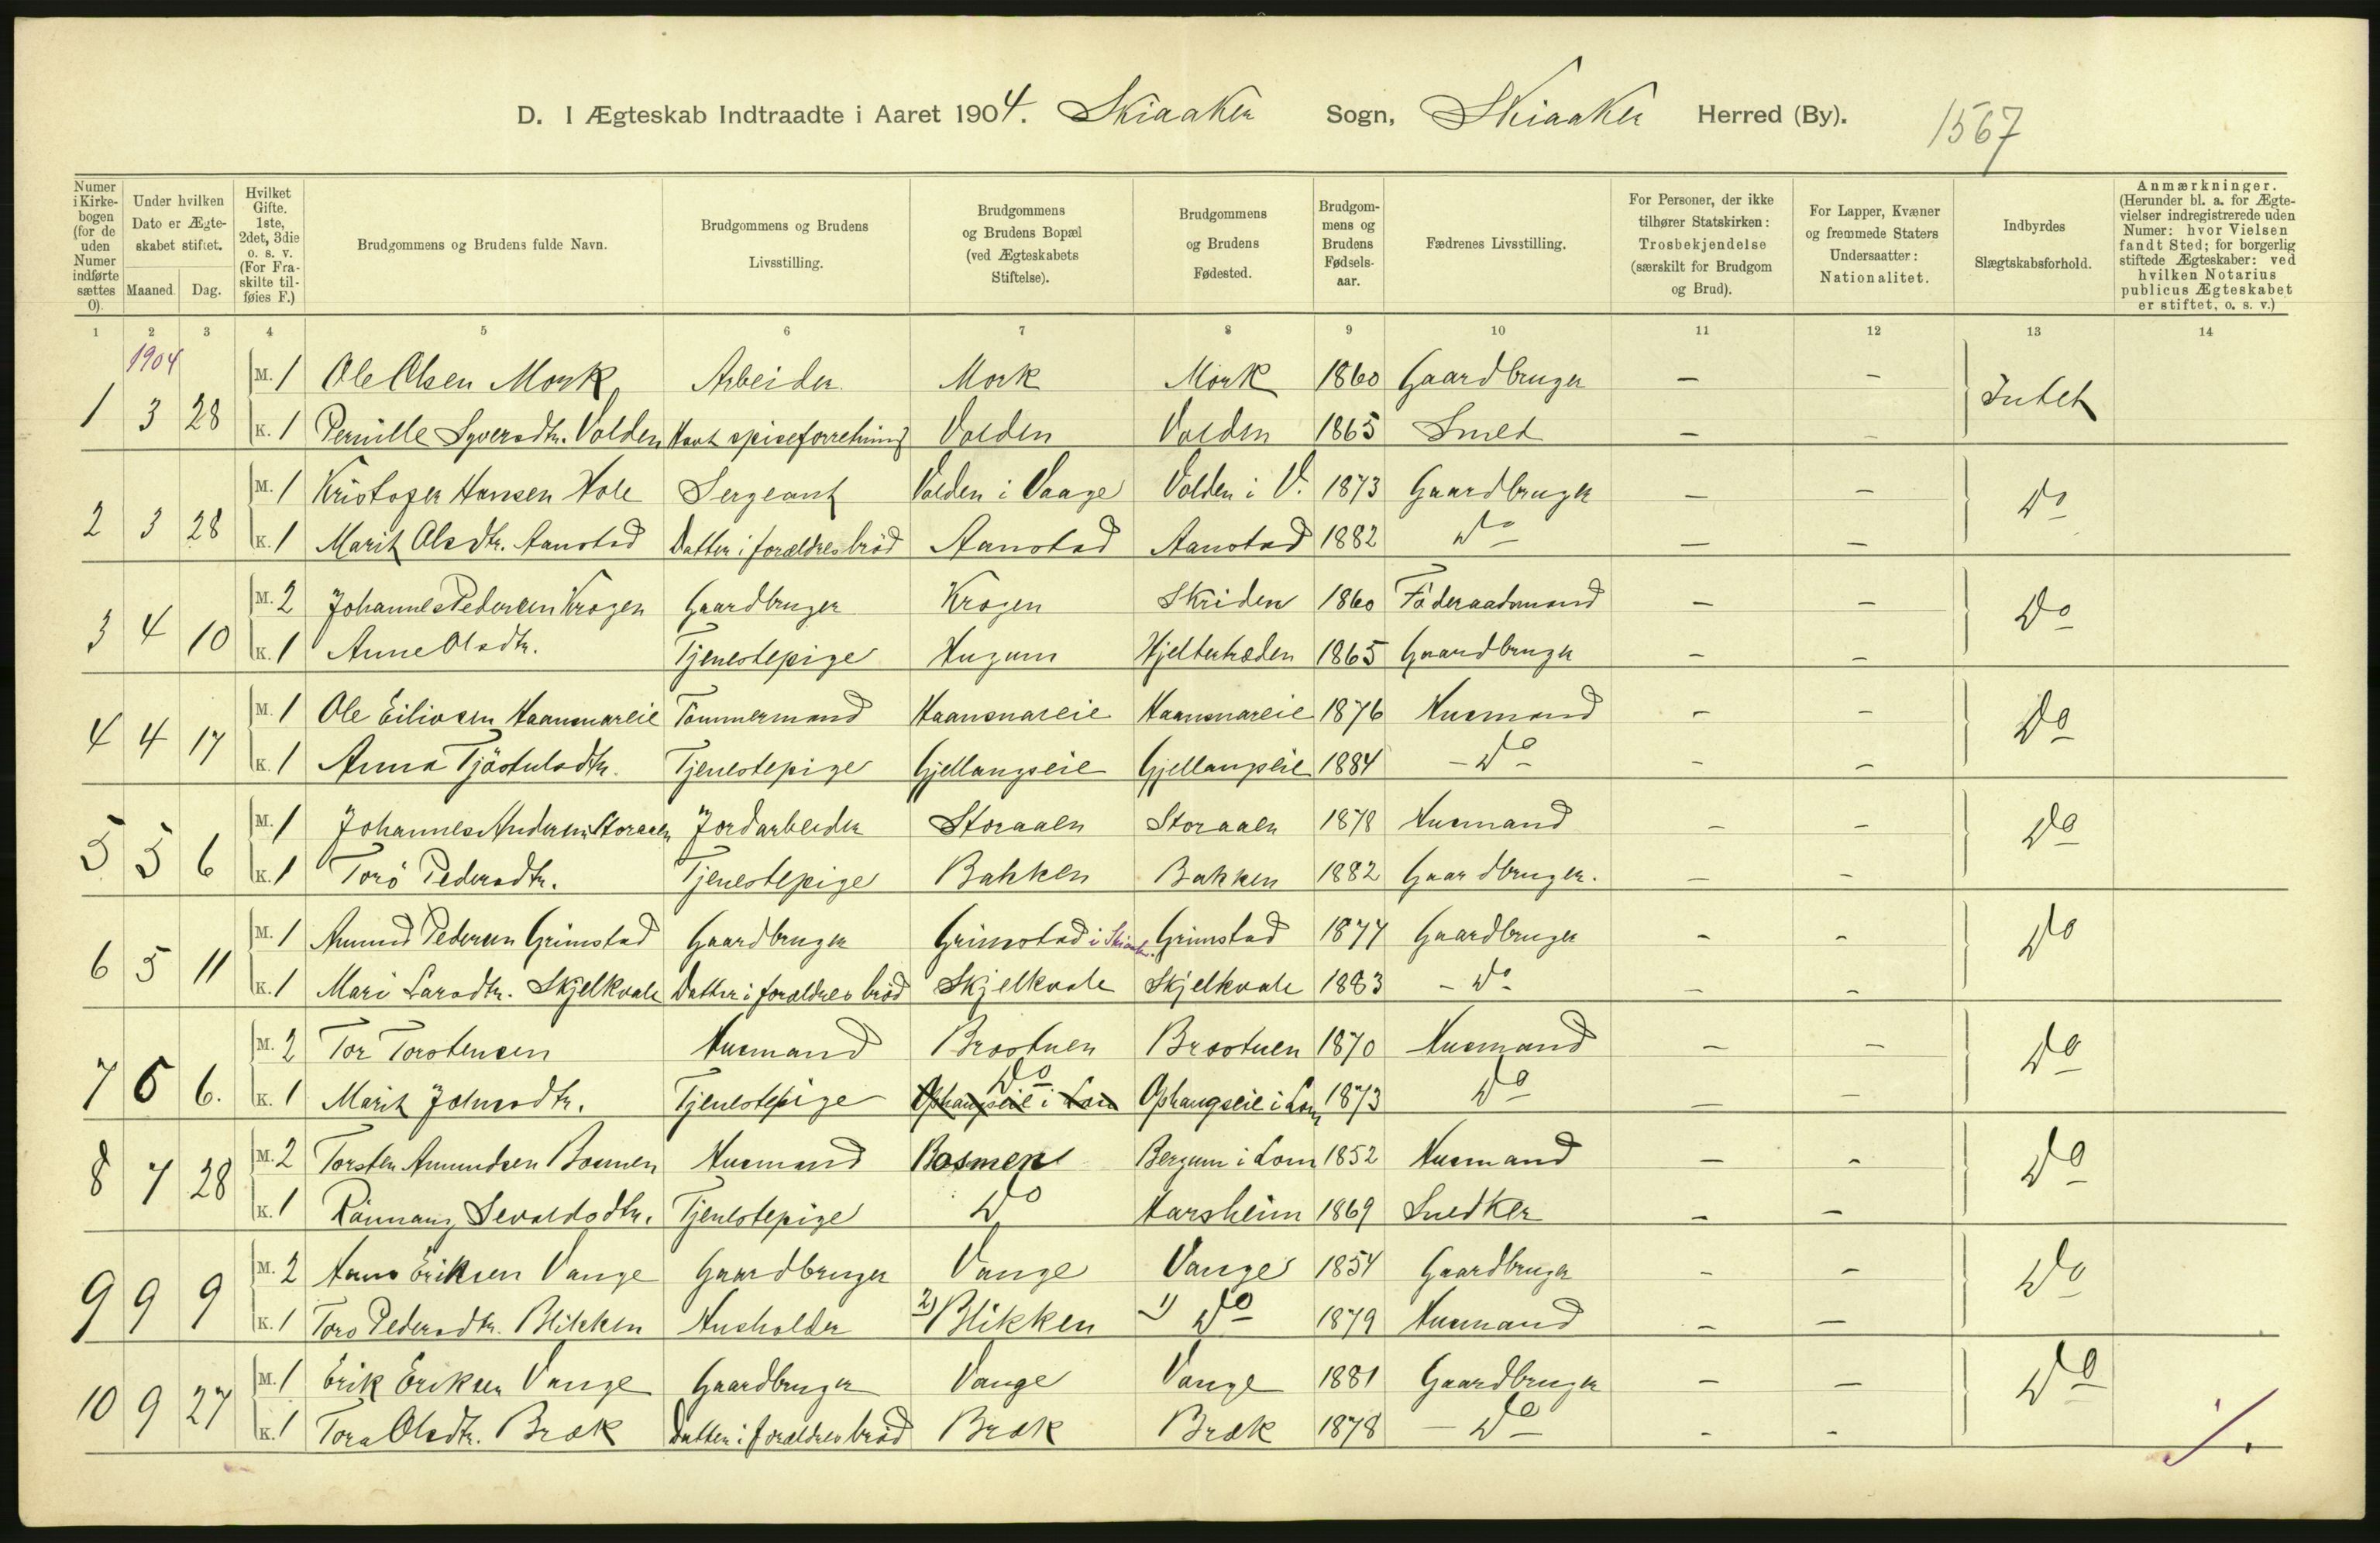 D. I Ægteskab Indtraadte i Aaret 1904. Skiaaker Sogn, Skiaaker Herred (By). 1567
Numer i Kirkebogen (for de uden Numer indførte sættes 0).
Under hvilken Dato er Ægteskabet stiftet.
Maaned. Dag.
Hvilket Gifte. 1ste, 2det, 3die o. s. v. (For Fraskilte tilføies F.)
Brudgommens og Brudens fulde Navn.
Brudgommens og Brudens Livsstilling.
Brudgommens og Brudens Bopæl (ved Ægteskabets Stiftelse).
Brudgommens og Brudens Fødested.
Brudgommens og Brudens Fødselsaar.
Fædrenes Livsstilling.
For Personer, der ikke tilhører Statskirken: Trosbekjendelse (særskilt for Brudgom og Brud).
For Lapper, Kvæner og fremmede Staters Undersaatter: Nationalitet.
Indbyrdes Slægtskabsforhold.
Anmærkninger. (Herunder bl. a. for Ægtevielser indregistrerede uden Numer: hvor Vielsen fandt Sted; for borgerlig stiftede Ægteskaber: ved hvilken Notarius publicus Ægteskabet er stiftet, o. s. v.)
1 2 3 4 5 6 7 8 9 10 11 12 13 14
1904
1 3 28 M. 1 Ole Olsen Mork Arbeider Mork Mork 1860 Gaardbruger – – Intet
K. 1 Pernille Syversdtr. Volden Havt spiseforretning Volden Volden 1865 Smed – –
2 3 28 M. 1 Kristofer Hansen Hole Sergeant Volden i Vaage Volden i V. 1873 Gaardbruger – – Do
K. 1 Marit Olsdtr. Aanstad Datter i forældres brød Aanstad Aanstad 1882 Do – –
3 4 10 M. 2 Johannes Pedersen Krogen Gaardbruger Krogen Skriden 1860 Föderaadsmand – – Do
K. 1 Anne Olsdtr. Tjenestepige Hugum Hjeltertræden 1865 Gaardbruger – –
4 4 17 M. 1 Ole Eilivsen Haansnareie Tømmermand Haansnareie Haansnareie 1876 Husmand – – Do
K. 1 Anna Tjöstulsdtr. Tjenestepige Gjellangseie Gjellangseie 1884 – Do – – –
5 5 6 M. 1 Johannes Andersen Storaaen Jordarbeider Storaaen Storaaen 1878 Husmand – – Do
K. 1 Torö Pedersdtr. Tjenestepige Bakken Bakken 1882 Gaardbruger. – –
6 5 11 M. 1 Amund Pedersen Grimstad Gaardbruger Grimstad i Skiaak. Grimstad 1877 Gaardbruger – – Do
K. 1 Mari Larsdtr. Skjelkvale Datter i forældres brød Skjelkvale Skjelkvale 1883 – Do – – –
7 6 6. M. 2 Tor Torstensen Husmand Brostuen Brostuen 1870 Husmand – – Do
K. 1 Marit Johnsdtr. Tjenestepige Ophangseie i Lom Do Ophangseie i Lom 1873 Do – –
8 7 28 M. 2 Torsten Amundsen Bosmen Husmand Bosmen Bergum i Lom 1852 Husmand – – Do
K. 1 Rönnaug Sevaldsdtr. Tjenestepige Do Harsheim 1869 Snedker – –
9 9 9 M. 2 Hans Eriksen Vange Gaardbruger Vange Vange 1854 Gaardbruger – – Do
K. 1 Toro Pedersdtr. Blikken Husholder 2) Blikken 1) Do 1879 Husmand – –
10 9 27 M. 1 Erik Eriksen Vange Gaardbruger Vange Vange 1881 Gaardbruger – – Do
K. 1 Tora Olsdtr. Bræk Datter i forældres brød Bræk Bræk 1878 – Do – – –